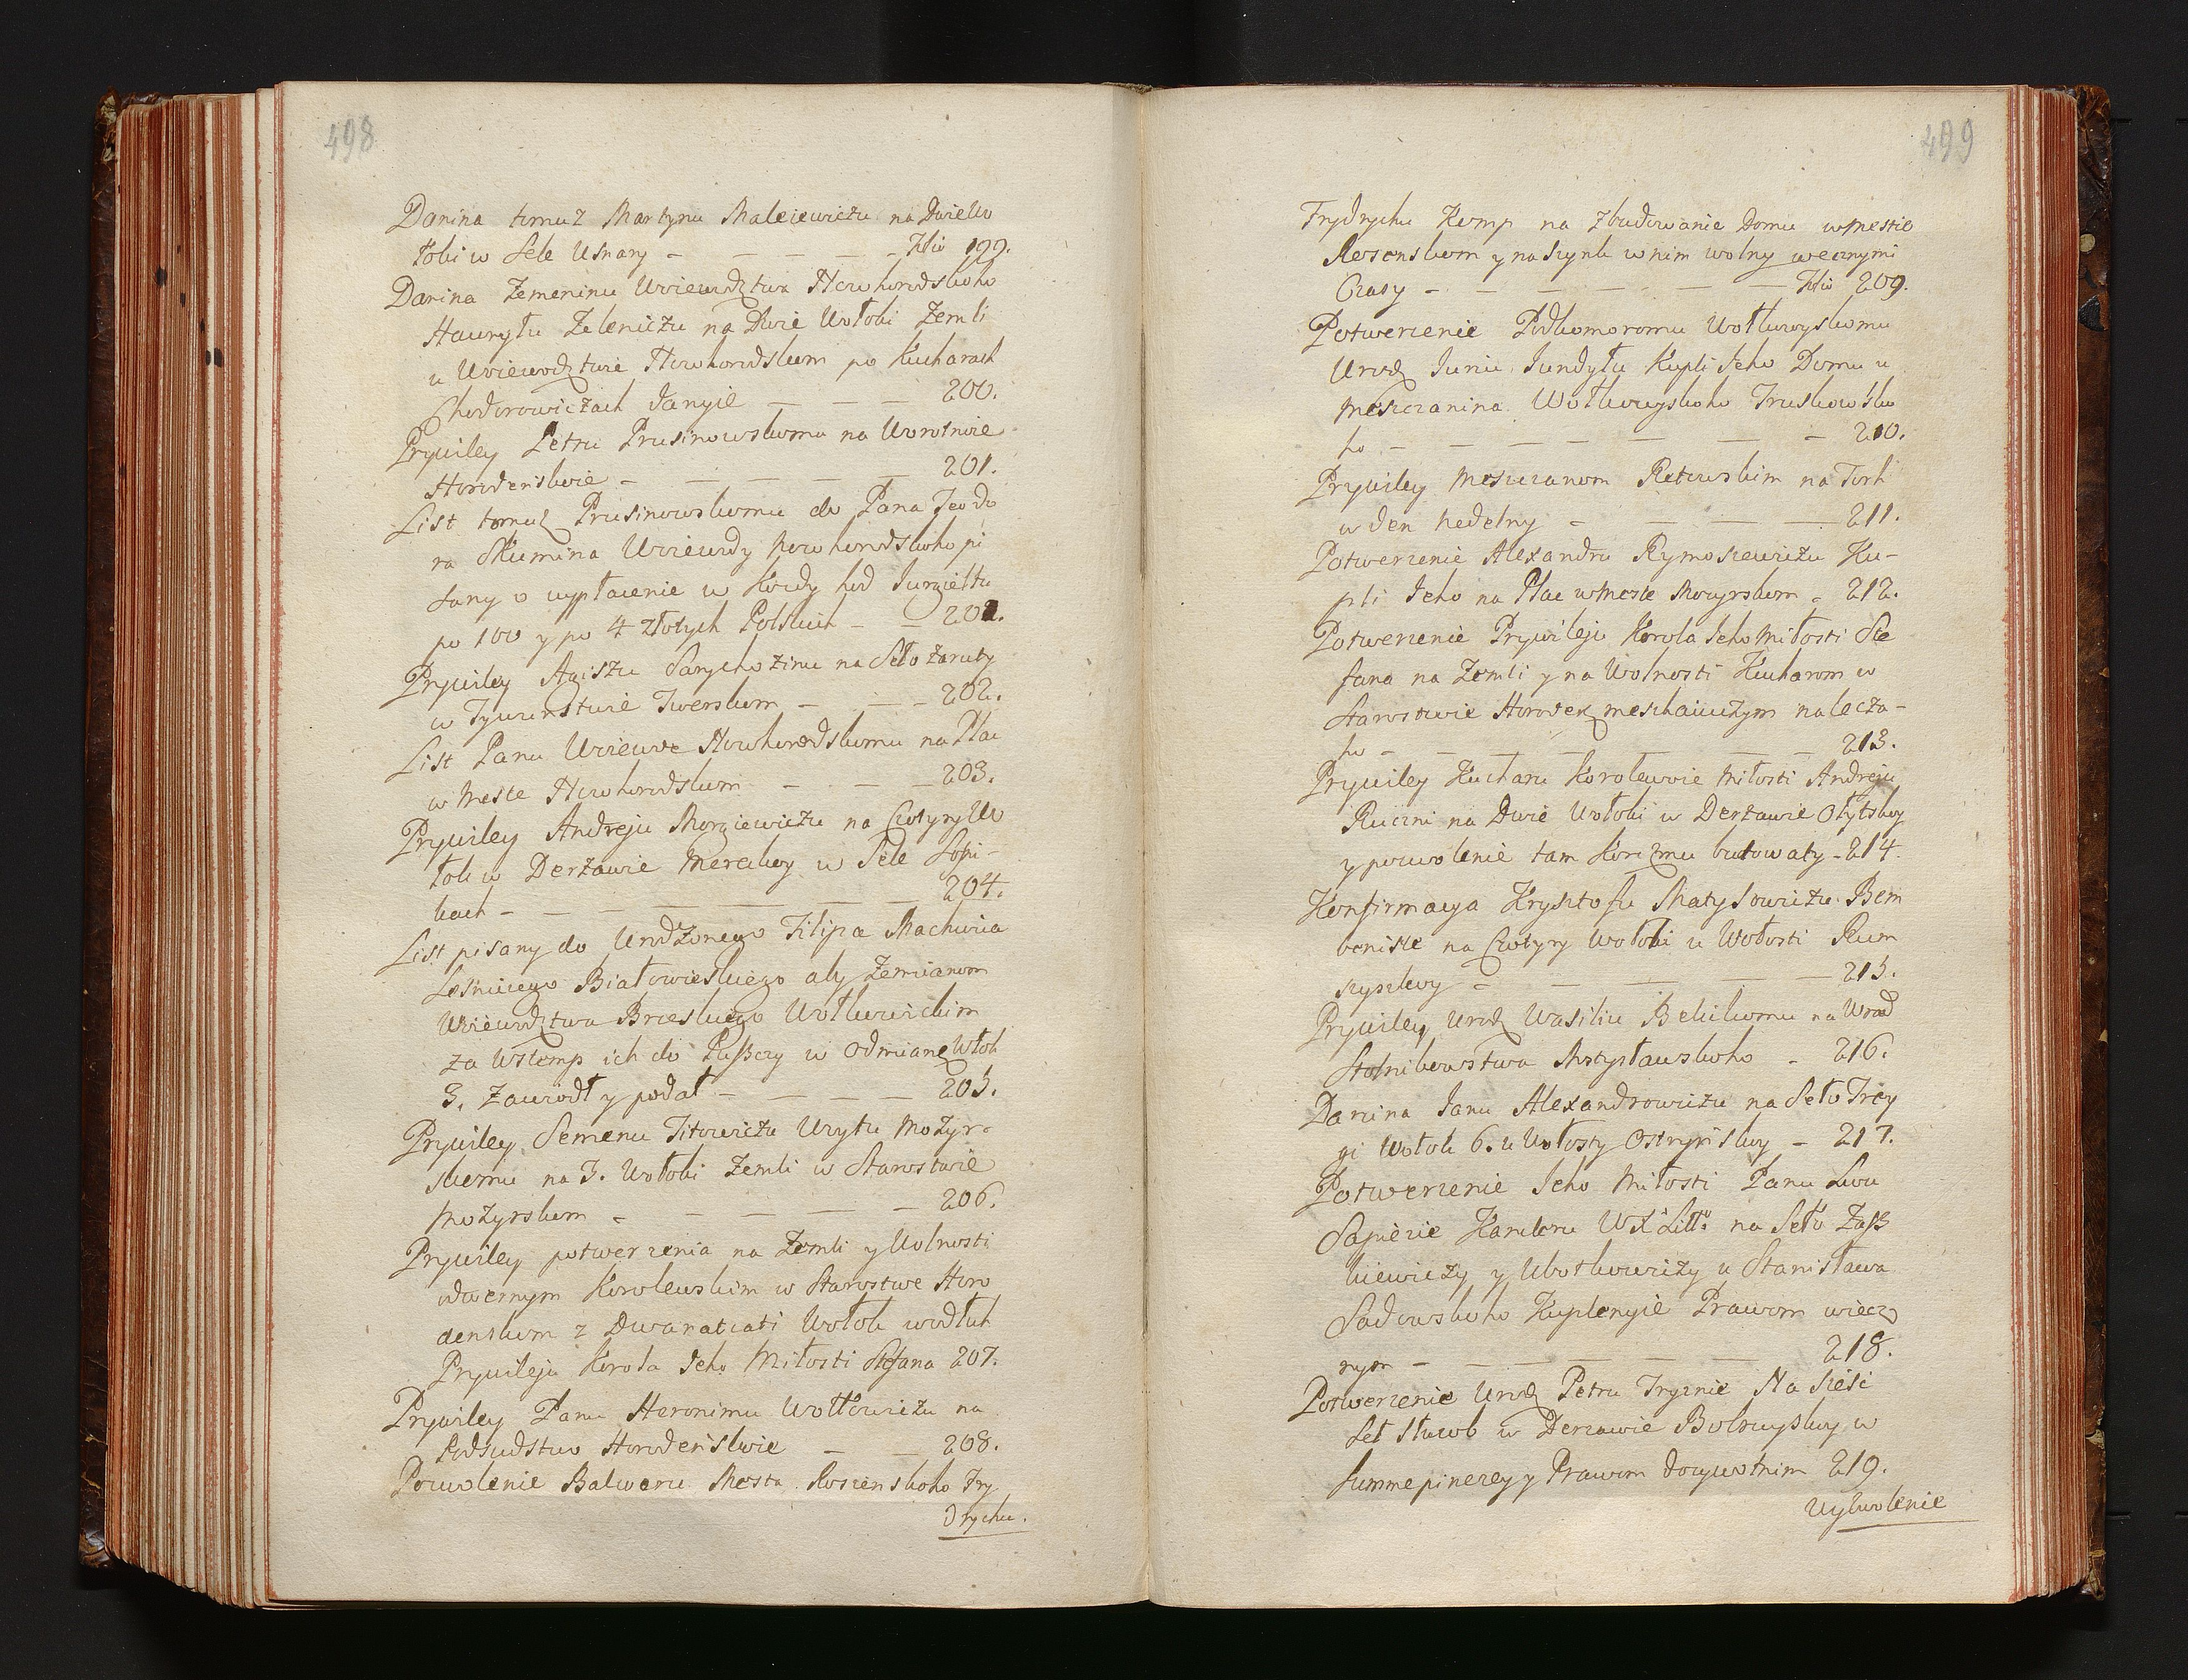 498
Danina tomuż Martynu Maleiewiczu na Dwie Wo
łoki w Sele Usnary - - - - - Kto 199.
Danina Zemeninu Wojewodztwa Nowhorodskoho
Hawryłu Zeleniczu na Dwie Wołoki Zemli
u Wojewodztwie Nowhorodskom po Kucharach
Chodorowiczach danyie - - - 200.
Prywiley Petru Prusinowskomu na Worotnie
Horodenskoie - - - - - 201.
List tomuż Prusinowskomu do Pana Teodo
ra Skumina Wojewody Nowhorodskoho pi
sany o wypłacenie w Kożdy hod Jurgieltu
po 100 y po 4 złotych Polskich - - 201.
Prywiley Agiszu Sarychozinu na Seło Zaruty
w Tywunstwie Twerskom - - - 202.
List Panu Wojewode Nowhorodskomu na Plac
w Meste Nowhorodskom - - - 203.
Prywiley Andreju Morziewiczu na Czotyry Wo
łok w Derżawie Mereckoy w Sele Sopi-
kach - - - - - - 204.
List pisany do Urodzonego Filipa Machwica
Leśniczego Białowieskiego aby Zemianom
Wojewodztwa Brzeskiego Wołkowickim
za Wstemp ich do Puszczy w odmianę Włok
3. Zawiodł y podał - - - - 205.
Prywiley Semenu Titowiczu Woytu Mozyr-
skomu na 3. Wołoki Zemli w Starostwie
Mozyrskom - - - - - 206.
Prywiley potwerzenia na Zemli y Wolnosti
dwornym Korolewskim w Starostwe Horo
denskom z Dwanatcati Wołok wodłuh
Prywileju Korola Jeho Miłosti Stefana 207.
Prywiley Panu Heronimu Wołłowiczu na
Podsudstwo Horodenskoie - - 208.
Pozwolenie Balweru Mesta Rosienskoho Fry
drychu.
499
Frydrychu Komp na Zbudowanie Domu w Mestie
Rosenskom y na szynk w nim wolny wecznymi
Czasy - - - - - - Kto 209.
Potwerzenie Podkomoromu Wołkowyskomu
Urodz Juriu Jundyłu Kupli Jeho Domu u
Meszczanina Wołkowyskoho Truskowsko
ho - - - - - - - 210.
Prywiley Meszczanom Retowskim na Torh
w den Nedelny - - - - 211.
Potwerzenie Alexandru Rymoszewiczu Ku-
pli Jeho na Plac w Meste Mozyrskom - 212.
Potwerzenie Prywileju Korola Jeho Miłosti Ste
fana na Zemli y na Wolnosti Kucharom w
Starostwie Horoden meszkaiuczym należa-
ho - - - - - - - 213.
Prywiley Kucharu Korolewoie Miłosti Andreju
Ruczni na Dwie Wołoki w Derżawie Ołytskoy
y pozwolenie tam Korczmu budowaty - 214.
Konfirmacya Krysztofu Matysowiczu Bem
benistie na Czotyry Wołoki u Wołosti Rum
szyszkoy - - - - - 215.
Prywiley Urodz Wasiliu Bekikomu na Wrad
Stolnikowstwa Mstysławskoho - 216.
Danina Janu Alexandrowiczu na Seło Trey
gi Wołok 6. u Wołosty Ostrynskoy - 217.
Potwerzenie Jeho Miłosti Panu Lwu
Sapiezie Kancleru WXLitt: na Seło Zasz
kiewiczy y Wołkowiczy u Stanisława
Sadowskoho Kuplenyie Prawom wiecz
nym - - - - - - 218.
Potwerzenie Urodz Petru Tryznie Na Sześć
Seł Słucob w Derzawie Bobruyskoy w
Summe pinezey y Prawom dożywotnim 219.
Uyzwolenie